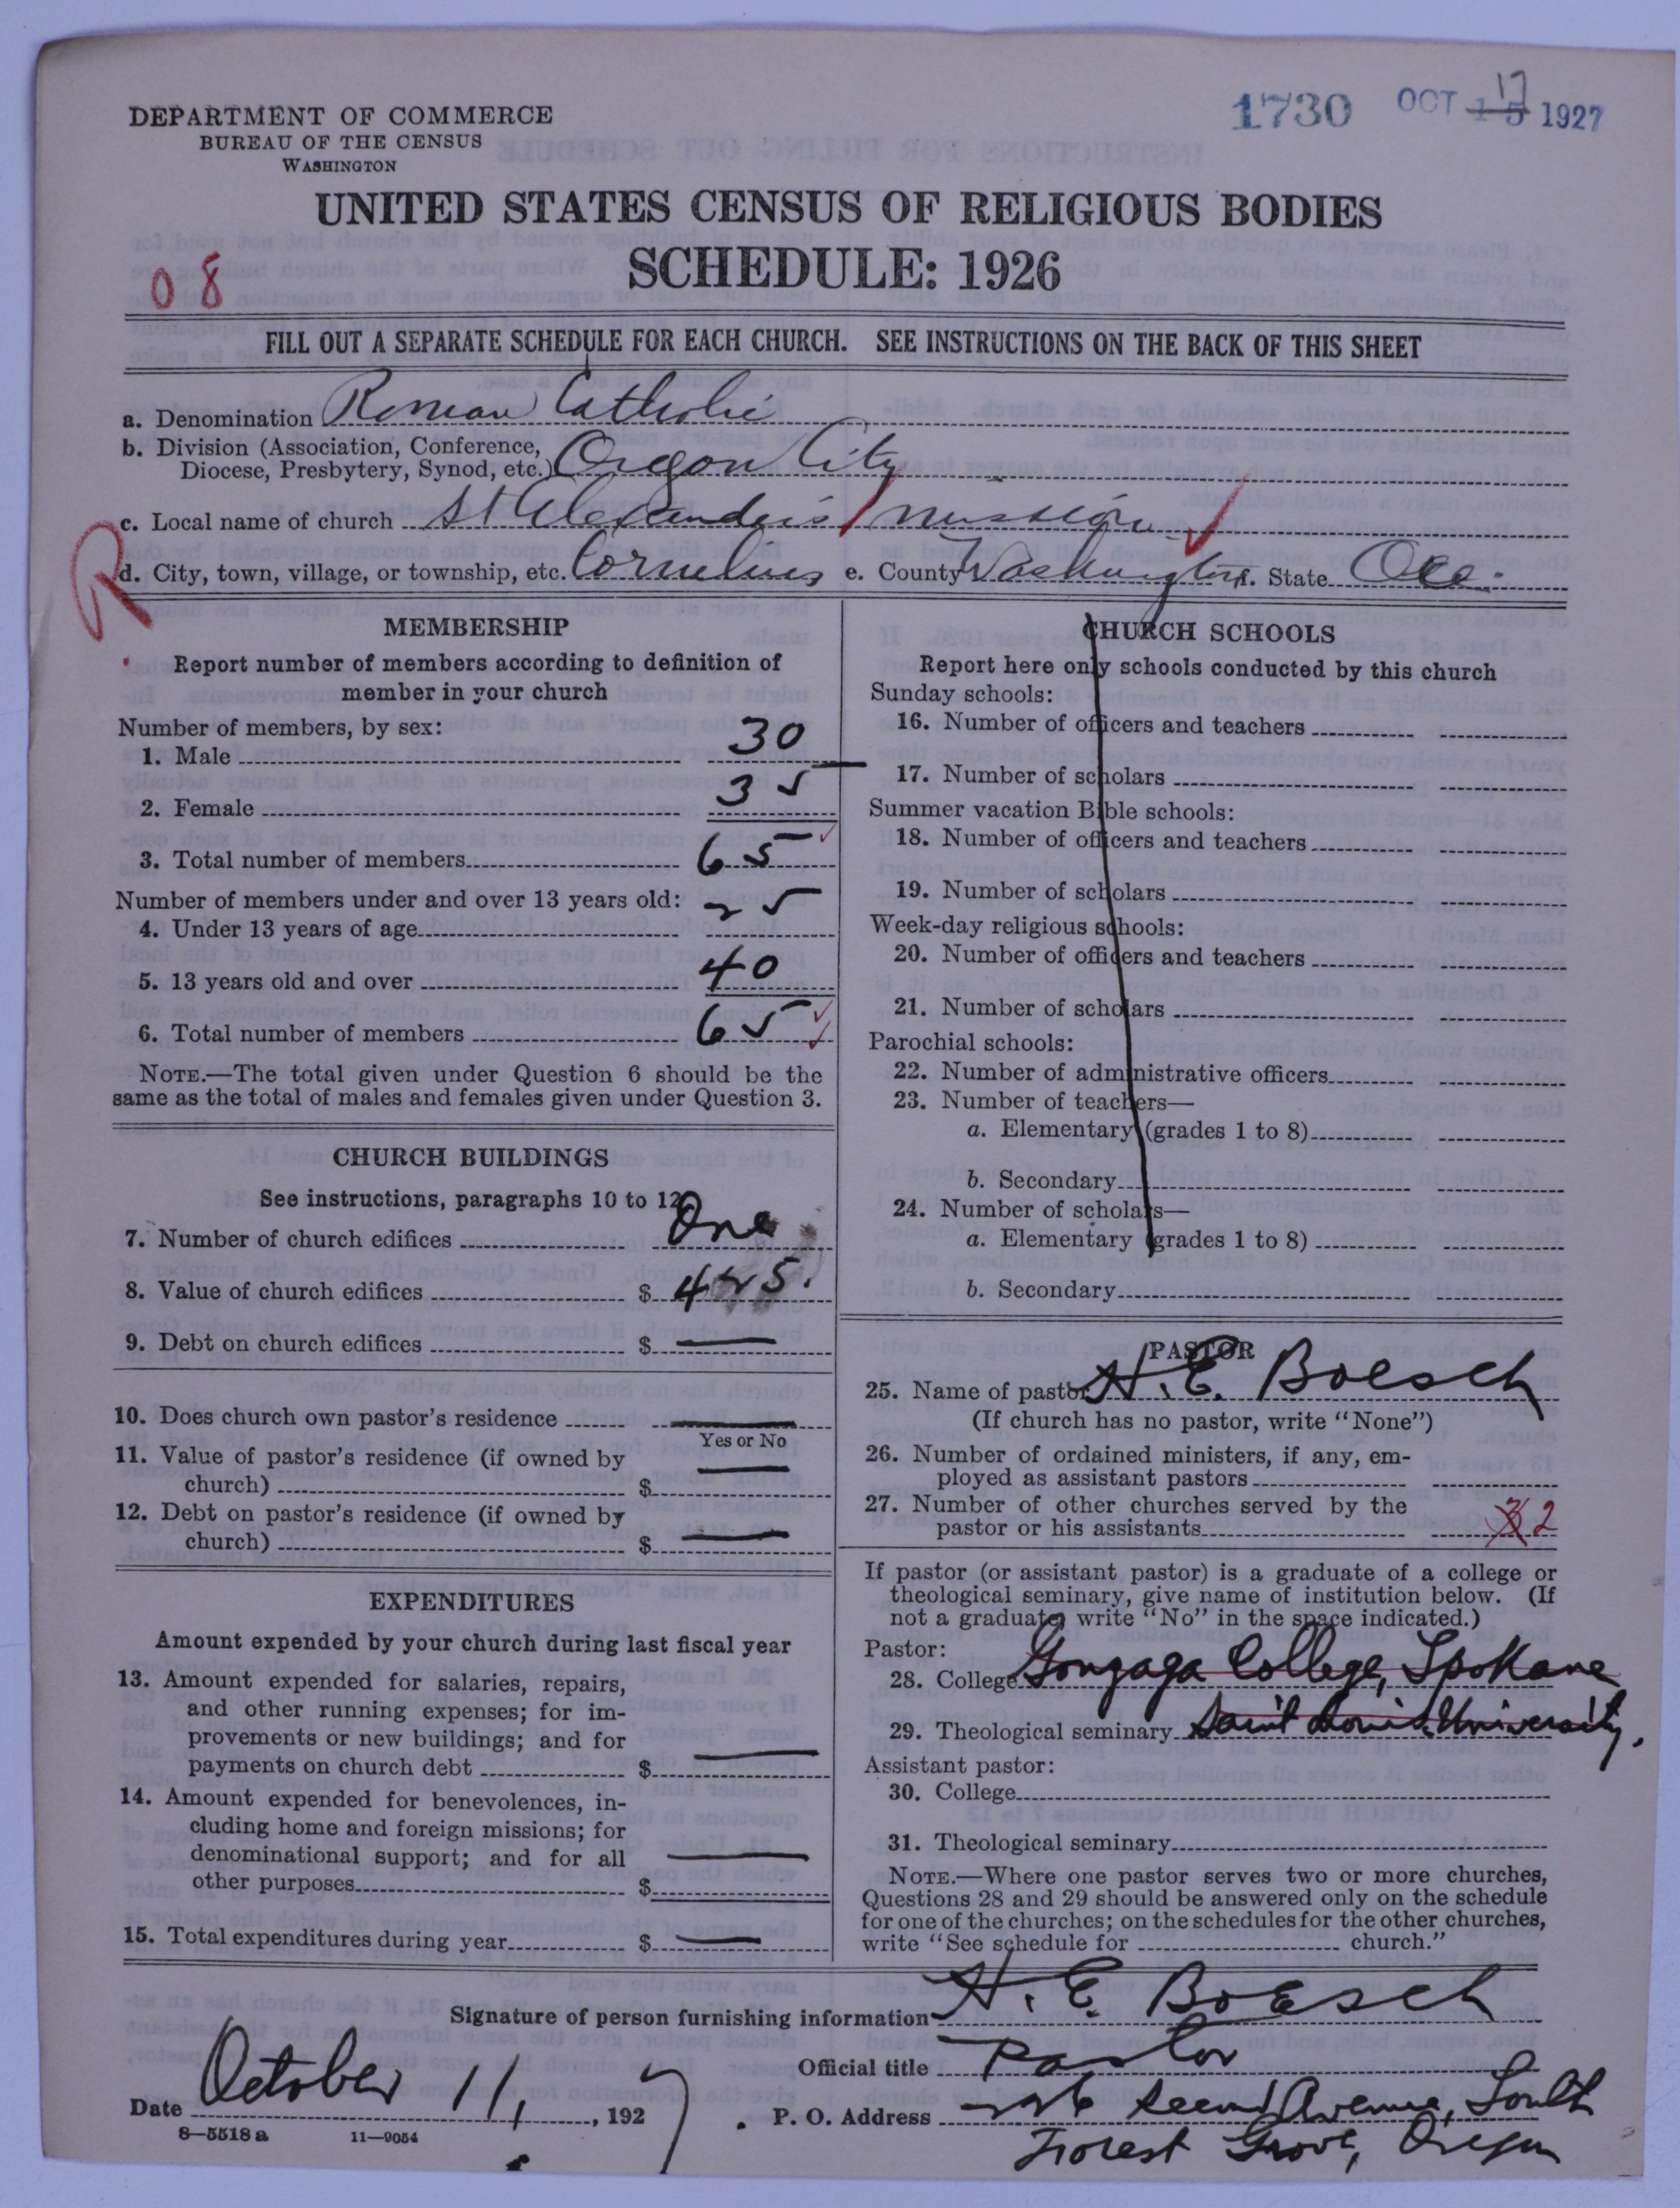 DEPARTMENT OF COMMERCE
BUREAU OF THE CENSUS
WASHINGTON
1730 OCT 15 1927
17
UNITED STATES CENSUS OF RELIGIOUS BODIES
SCHEDULE: 1926
08
FILL OUT A SEPARATE SCHEDULE FOR EACH CHURCH. SEE INSTRUCTIONS ON THE BACK OF THIS SHEET
a. Denomination Roman Catholic
b. Division (Association, Conference,
Diocese, Presbytery, Synod, etc.) Oregon City
c. Local name of church St Alexander's / mission
R
d. City, town, village, or township, etc. Cornelius e. County Washington f. State Ore.
MEMBERSHIP
Report number of members according to definition of
member in your church
Number of members, by sex:
1. Male 30
2. Female 35
3. Total number of members 65
Number of members under and over 13 years old:
4. Under 13 years of age 25
5. 13 years old and over 40
6. Total number of members 65
NOTE.—The total given under Question 6 should be the
same as the total of males and females given under Question 3.
CHURCH BUILDINGS
See instructions, paragraphs 10 to 12
7. Number of church edifices One
8. Value of church edifices $ 425.
9. Debt on church edifices $ —
10. Does church own pastor's residence —
Yes or No
11. Value of pastor's residence (if owned by
church) $ —
12. Debt on pastor's residence (if owned by
church) $ —
EXPENDITURES
Amount expended by your church during last fiscal year
13. Amount expended for salaries, repairs,
and other running expenses; for im-
provements or new buildings; and for
payments on church debt $ —
14. Amount expended for benevolences, in-
cluding home and foreign missions; for
denominational support; and for all
other purposes $ —
15. Total expenditures during year $ —
CHURCH SCHOOLS
Report here only schools conducted by this church
Sunday schools:
16. Number of officers and teachers
17. Number of scholars
Summer vacation Bible schools:
18. Number of officers and teachers
19. Number of scholars
Week-day religious schools:
20. Number of officers and teachers
21. Number of scholars
Parochial schools:
22. Number of administrative officers
23. Number of teachers—
a. Elementary (grades 1 to 8)
b. Secondary
24. Number of scholars—
a. Elementary (grades 1 to 8)
b. Secondary
PASTOR
25. Name of pastor H. E. Boesch
(If church has no pastor, write "None")
26. Number of ordained ministers, if any, em-
ployed as assistant pastors
27. Number of other churches served by the
pastor or his assistants 3 2
If pastor (or assistant pastor) is a graduate of a college or
theological seminary, give name of institution below. (If
not a graduate, write "No" in the space indicated.)
Pastor:
28. College Gonzaga College, Spokane
29. Theological seminary Saint Louis University.
Assistant pastor:
30. College
31. Theological seminary
NOTE.—Where one pastor serves two or more churches,
Questions 28 and 29 should be answered only on the schedule
for one of the churches; on the schedules for the other churches,
write "See schedule for church."
Signature of person furnishing information H. E. Boesch
Official title Pastor
Date October 11, 1927. P. O. Address 226 Second Avenue, South
8—5518 a 11—9054
Forest Grove, Oregon